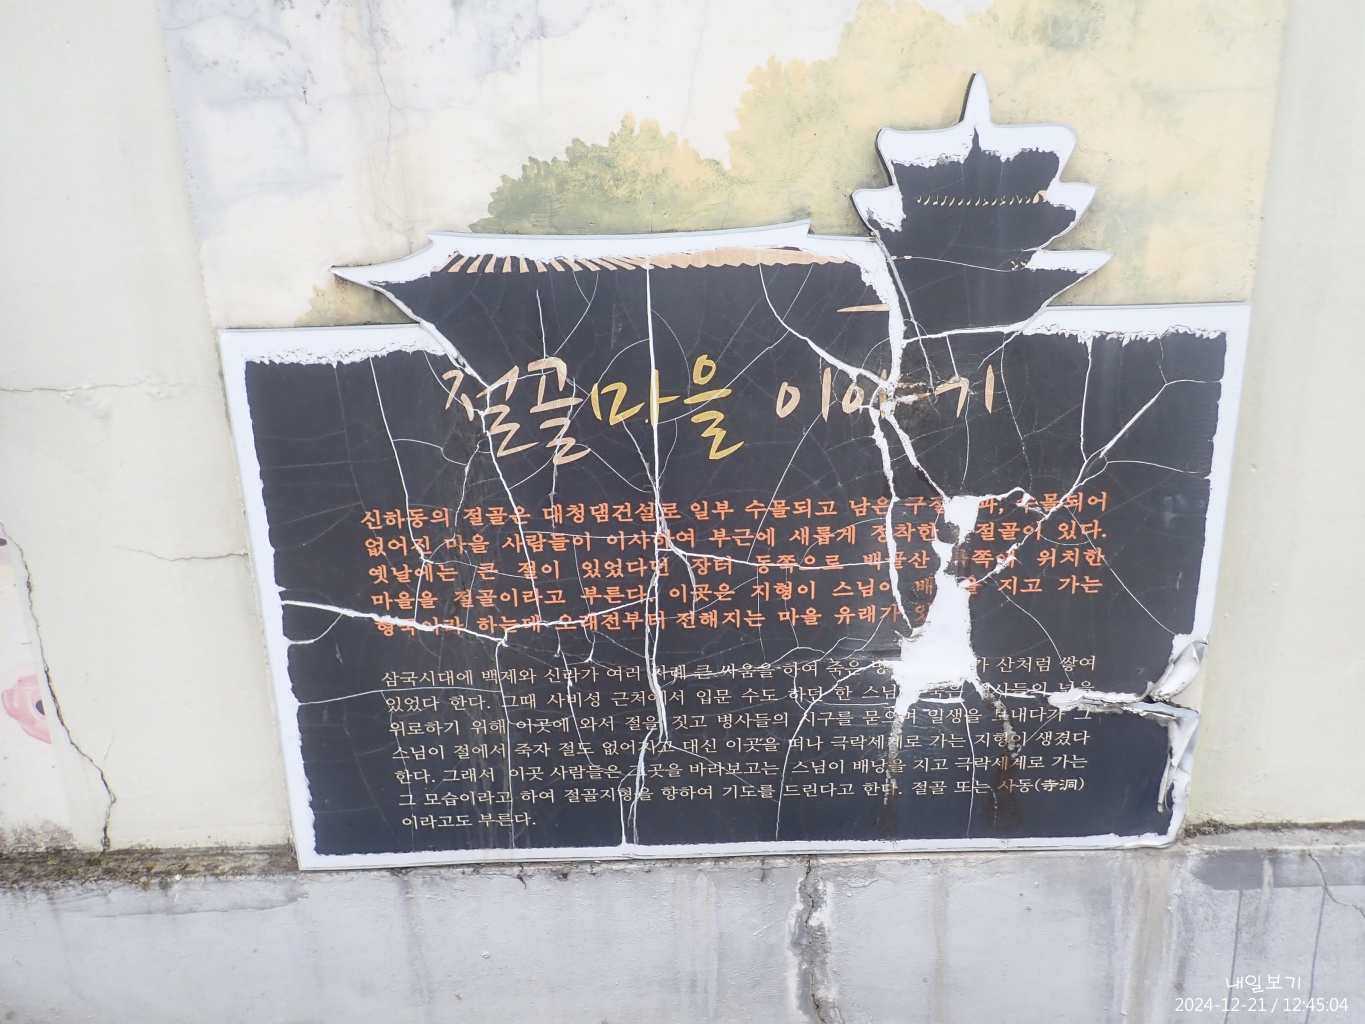 절골마을 이야기
신하동의 절골은 대청댐건설로 일부 수몰되고 남은 수몰되어
없어진 마을 사람들이 이사하여 부근에 새롭게 정착한 절골이 있다.
옛날에는 큰 절이 있었다던 장터 동쪽으로 백골산 위치한
마을을 절골이라고 부른다. 이곳은 지형이 스님이 지고 가는
형국이라 하는데 오래전부터 전해지는 마을 유래가
삼국시대에 백제와 신라가 여러 차례 큰 싸움을 하여 죽은 산처럼 쌓여
있었다 한다. 그때 사비성 근처에서 입문 수도 하던 한 넋을
위로하기 위해 이곳에 와서 절을 짓고 병사들의 시구를 묻으며 일생을 보내다가 그
스님이 절에서 죽자 절도 없어지고 대신 이곳을 떠나 극락세계로 가는 지형이 생겼다
한다. 그래서 이곳 사람들은 그곳을 바라보고는 스님이 배낭을 지고 극락세계로 가는
그 모습이라고 하여 절골지형을 향하여 기도를 드린다고 한다. 절골 또는 사동(寺洞)
이라고도 부른다.
내일보기
2024-12-21 / 12:45:04